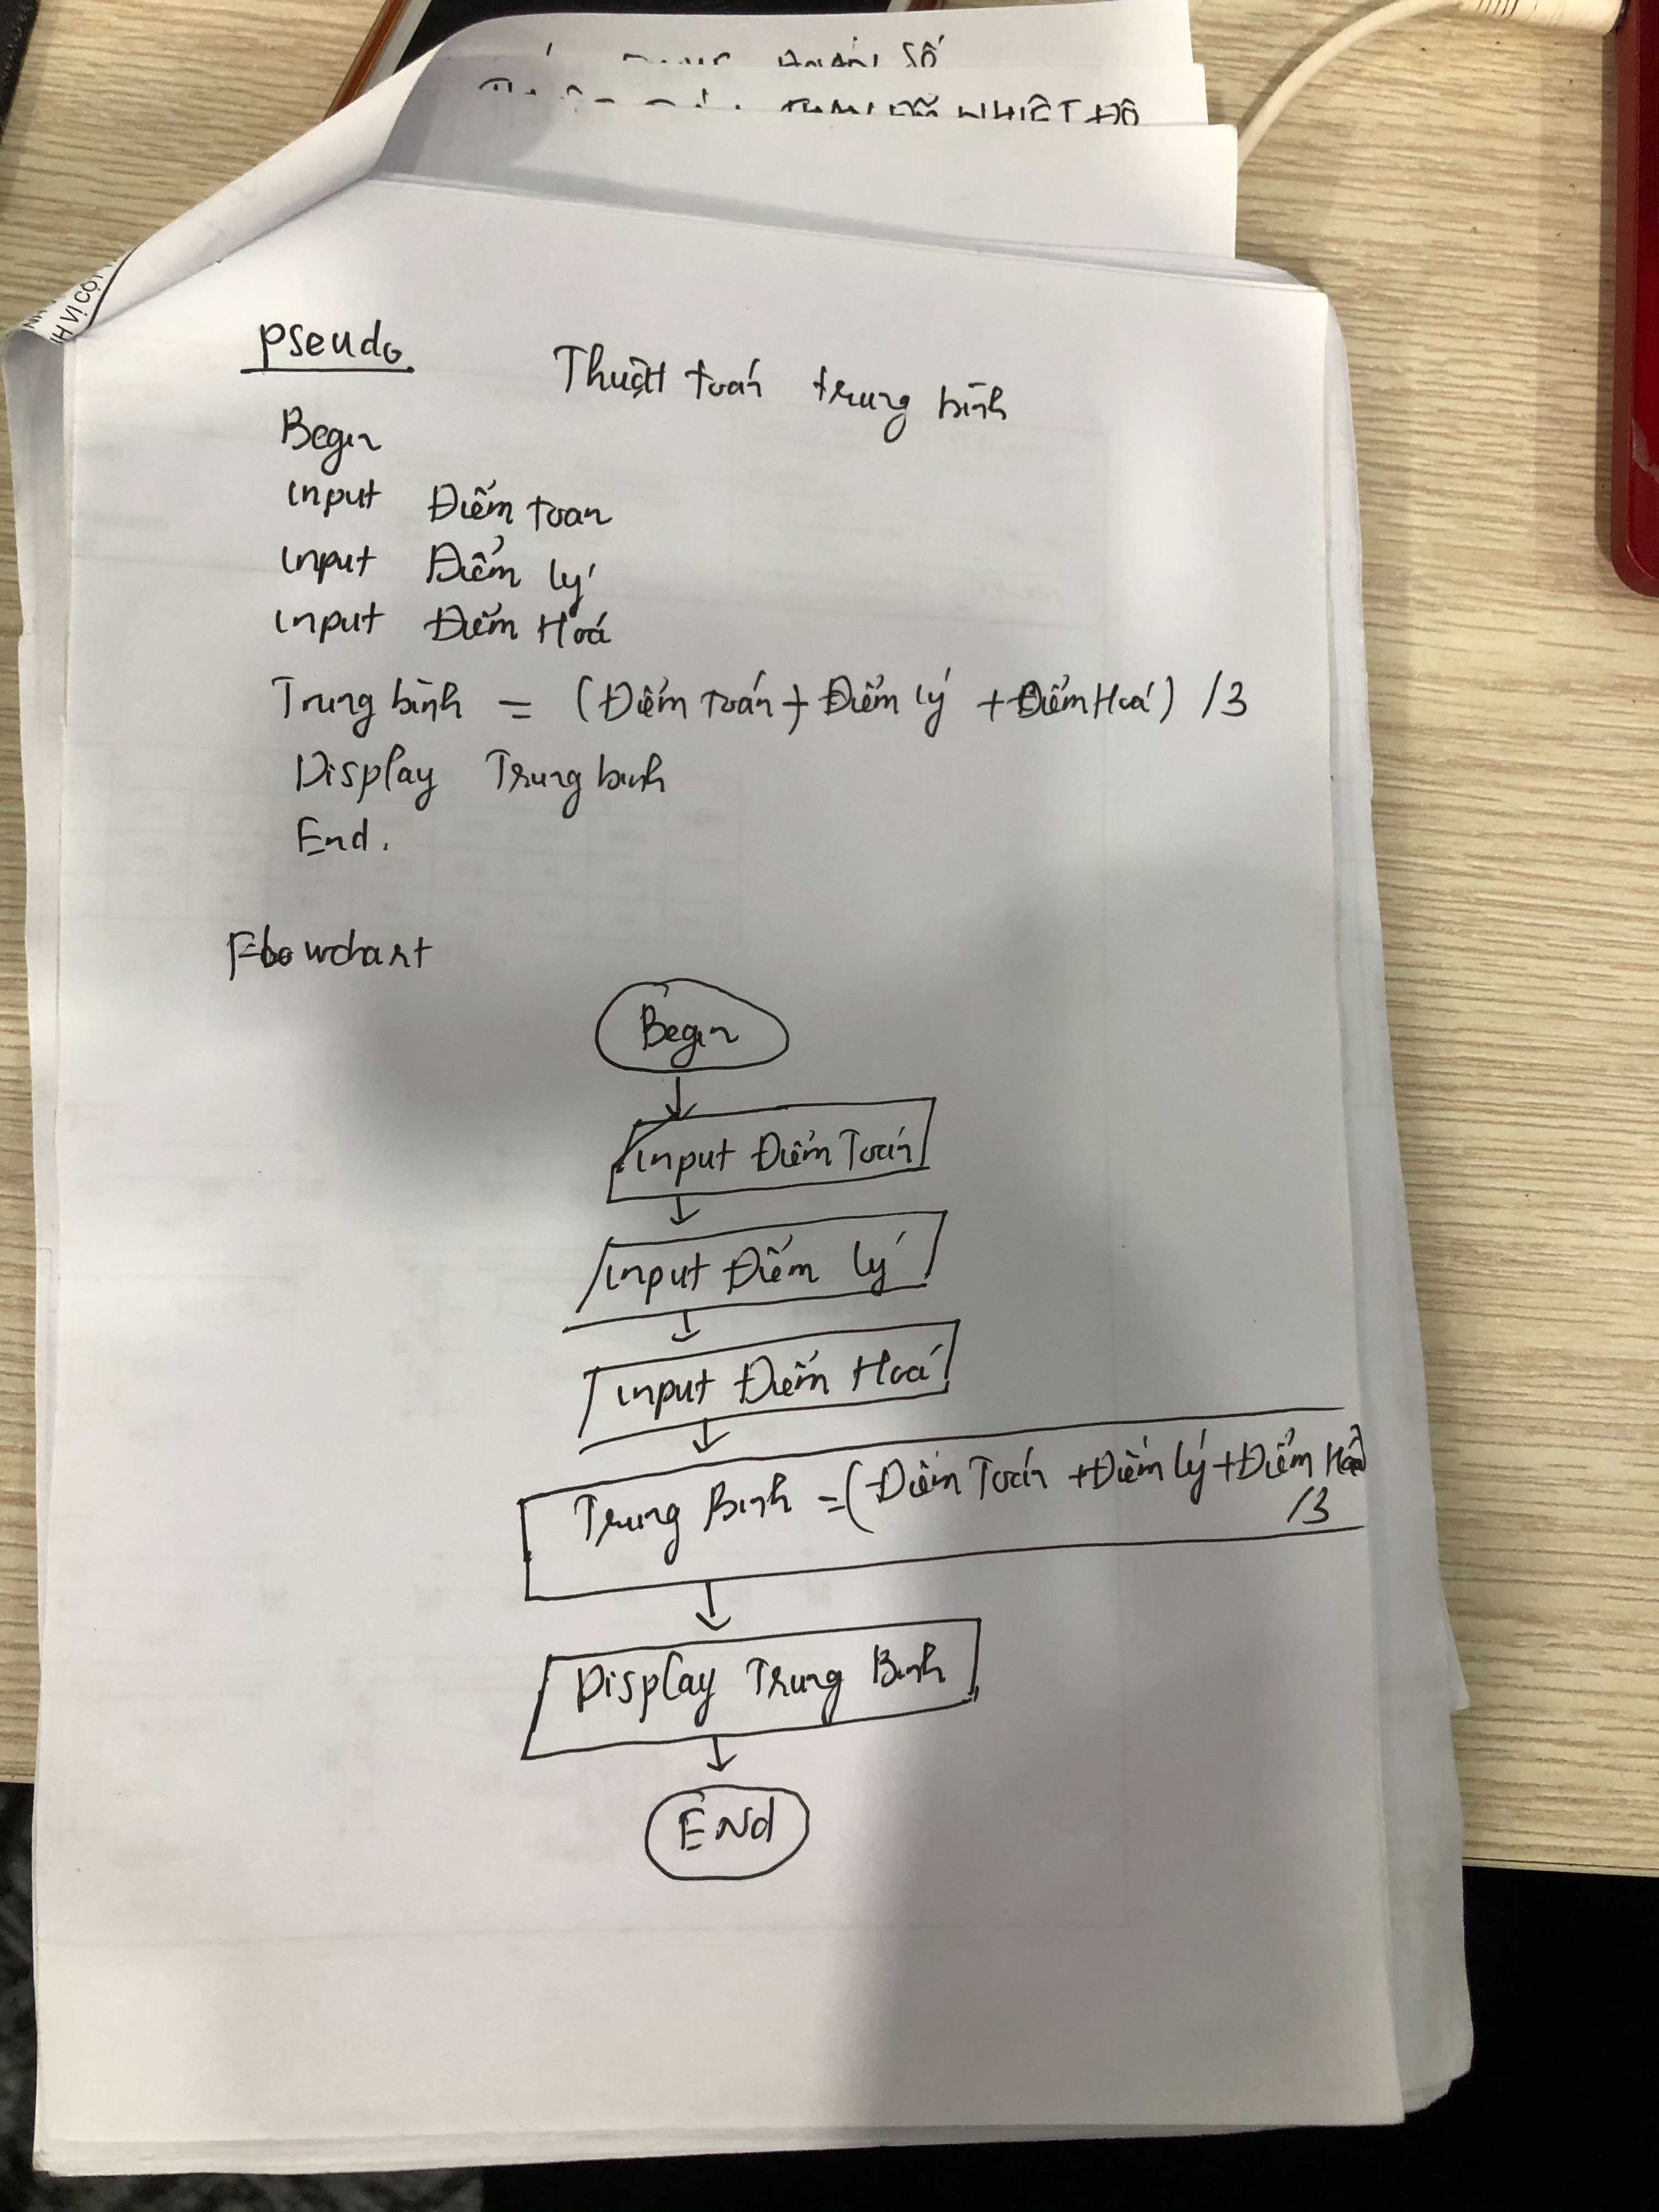 SỐ
NHIỆT ĐỘ
H VỊ CỘT
pseudo
Thuật toán trung bình
Begin
input Điểm toan
input Điểm lý
input Điểm Hoá
Trung bình = (Điểm toán + Điểm lý + Điểm Hoá) /3
Display Trung binh
End.
Flowchart
Begin
input Điểm Toán
input Điểm lý
input Điểm Hoá
Trung Binh = (Điểm Toán + Điểm lý + Điểm Hoá)
/3
Display Trung Binh
End